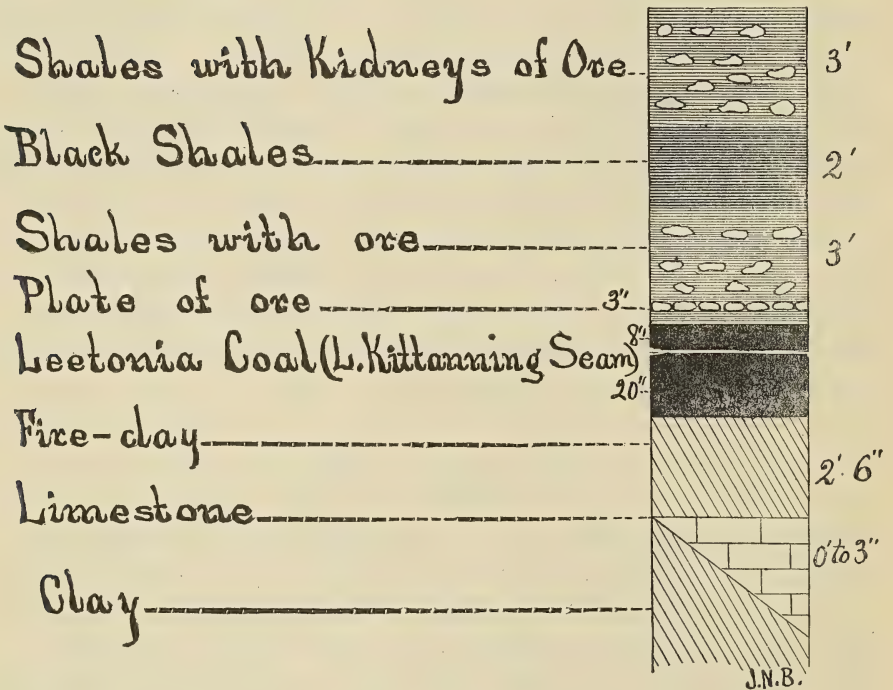 Shales with Kidneys of Ore 3'
Black Shales 2'
Shales with ore 3'
Plate of ore 3"
8"
Leetonia Coal (L. Kittanning Seam)
20"
Fire-clay 2' 6"
Limestone 0' to 3"
Clay
J.N.B.